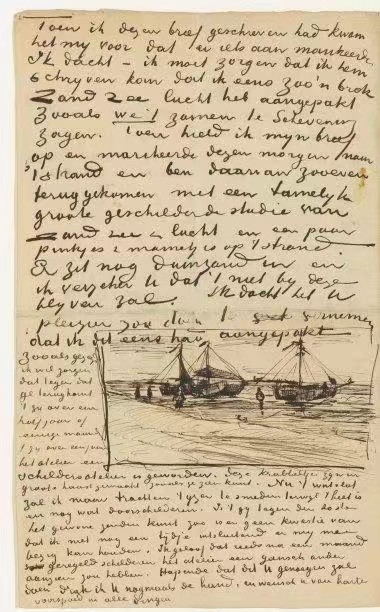 Toen ik dezen brief geschreven had kwam
het mij voor dat er iets aan mankeerde.
Ik dacht – ik moet zorgen dat ik hem
schrijven kan dat ik eens zoo'n brok
zand zee lucht heb aangepakt
zooals we t zamen te Schevening
zagen. Toen hield ik mijn brief
op en marcheerde dezen morgen naar
't strand en ben daarvan zooeven
teruggekomen met een tamelijk
groote geschilderde studie van
zand zee & lucht en een paar
pinkjes & mannetjes op 't strand.
Er zit nog duinzand in en
ik verzeker U dat 't niet bij deze
blijven zal. Ik dacht het U
plezier zou doen te vernemen
dat ik dit eens had aangepakt
Zooals gezegd
ik wil zorgen
dat tegen dat
ge terugkomt
't zij over een
half jaar of
eenige maanden
't zij over een jaar
het atelier een
schildersatelier is geworden. Deze krabbeltjes zijn in
groote haast gemaakt zooals ge zien kunt. Nu 't wat vlot
zal ik maar trachten 't ijzer te smeden terwijl 't heet is
en nog wat doorschilderen. Als gij tegen den 20sten
het gewone zenden kunt zoo is er geen kwestie van
dat ik niet nog een tijdje uitsluitend er mij mee
bezig kan houden. Ik geloof dat reeds na een maand
geregeld schilderen het atelier een gansch ander
aanzien zou hebben. Hopende dat dit U genoegen zal
doen druk ik U nogmaals de hand, en wensch U van harte
voorspoed in alle dingen